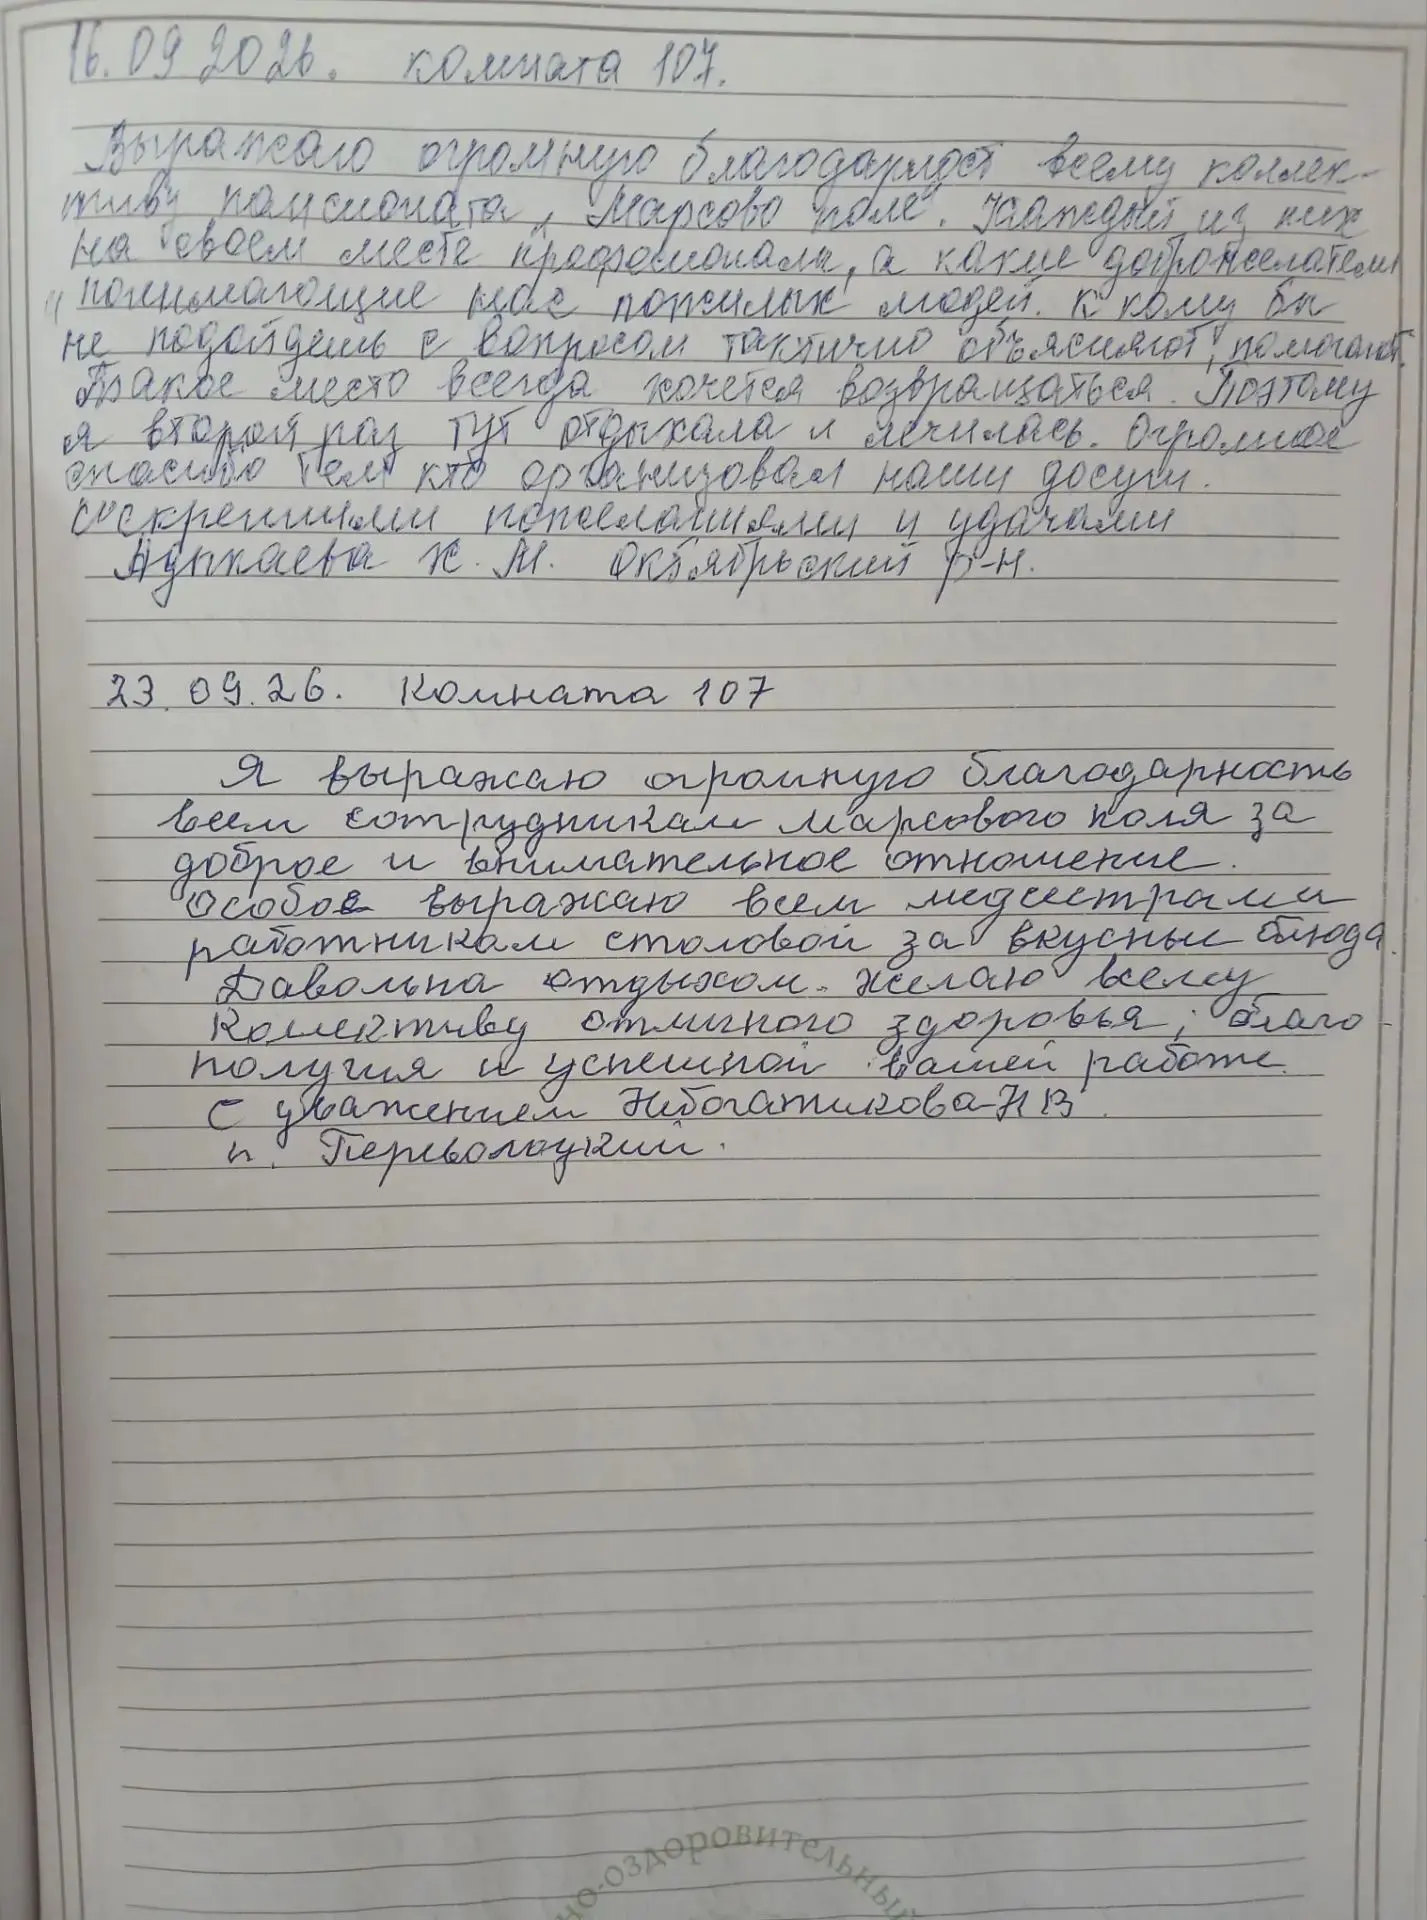 16.09 2026. комната 107.
Выражаю огромную благодарност всему коллек-
тиву пансионата „Марсово поле". Каждый из них
на своем месте професионалы, а какие доброжелательн
и понимающие нас пожилых людей. к кому бы
не подойдешь с вопросом тактично объясняют, помогают.
В такое место всегда хочется возвращаться. Поэтому
я второй раз тут отдыхала и лечилась. Огромное
спасибо тем кто организовал наши досуги.
С искренними пожеланиями и удачами
Х. М. Октябрьский р-н.
23.09.26. Комната 107
Я выражаю огромную благодарность
всем сотрудникам Марсового поля за
доброе и внимательное отношение.
Особое выражаю всем медсестрам и
работникам столовой за вкусные блюда.
Давольна отдыхом. Желаю всему
Колективу отличного здоровья, благо-
получия и успешной вашей работе.
С уважением Небогатикова Н В.
п. Переволоцкий.
но-оздоровительный